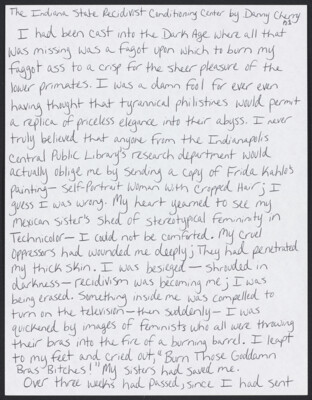 The Indiana State Recidivist Conditioning Center by Danny Cherry
I had been cast into the Dark Age where all that
was missing was a fagot upon which to burn my
faggot ass to a crisp for the sheer pleasure of the
lower primates. I was a damn fool for ever even
having thought that tyrannical philistines would permit
a replica of priceless elegance into their abyss. I never
truly believed that anyone from the Indianapolis
Central Public Library's research department would
actually oblige me by sending a copy of Frida Kahlo's
painting— Self-Portrait Woman with Cropped Hair; I
guess I was wrong. My heart yearned to see my
Mexican sister's shed of stereotypical femininity in
Technicolor— I could not be comforted. My cruel
oppressors had wounded me deeply; They had penetrated
my thick skin. I was besieged— shrouded in
darkness— recidivism was becoming me; I was
being erased. Something inside me was compelled to
turn on the television— then suddenly— I was
quickened by images of feminists who all were throwing
their bras into the fire of a burning barrel. I leapt
to my feet and cried out, "Burn Those Goddamn
Bras Bitches!" My sisters had saved me.
Over three weeks had passed, since I had sent